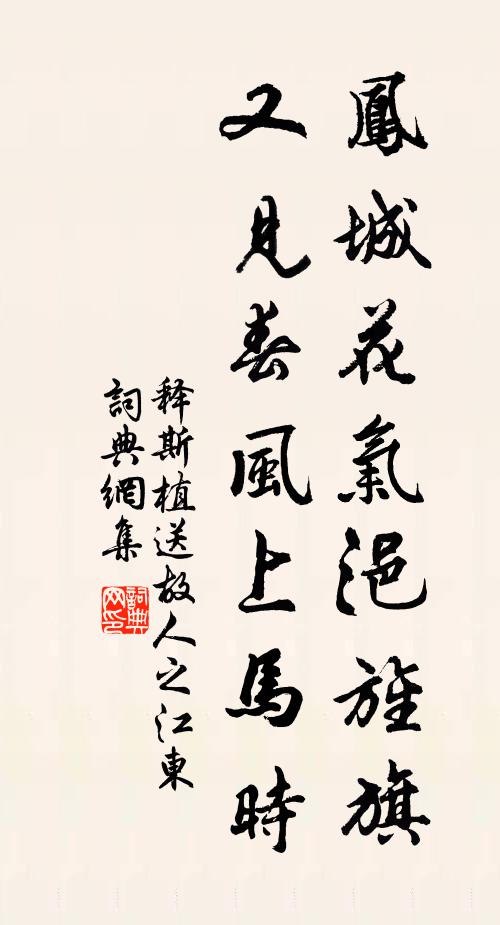 鳳城花氣浥旌旗
又見春風上馬時
释斯植送故人之江東
詞典網集
詞典网印